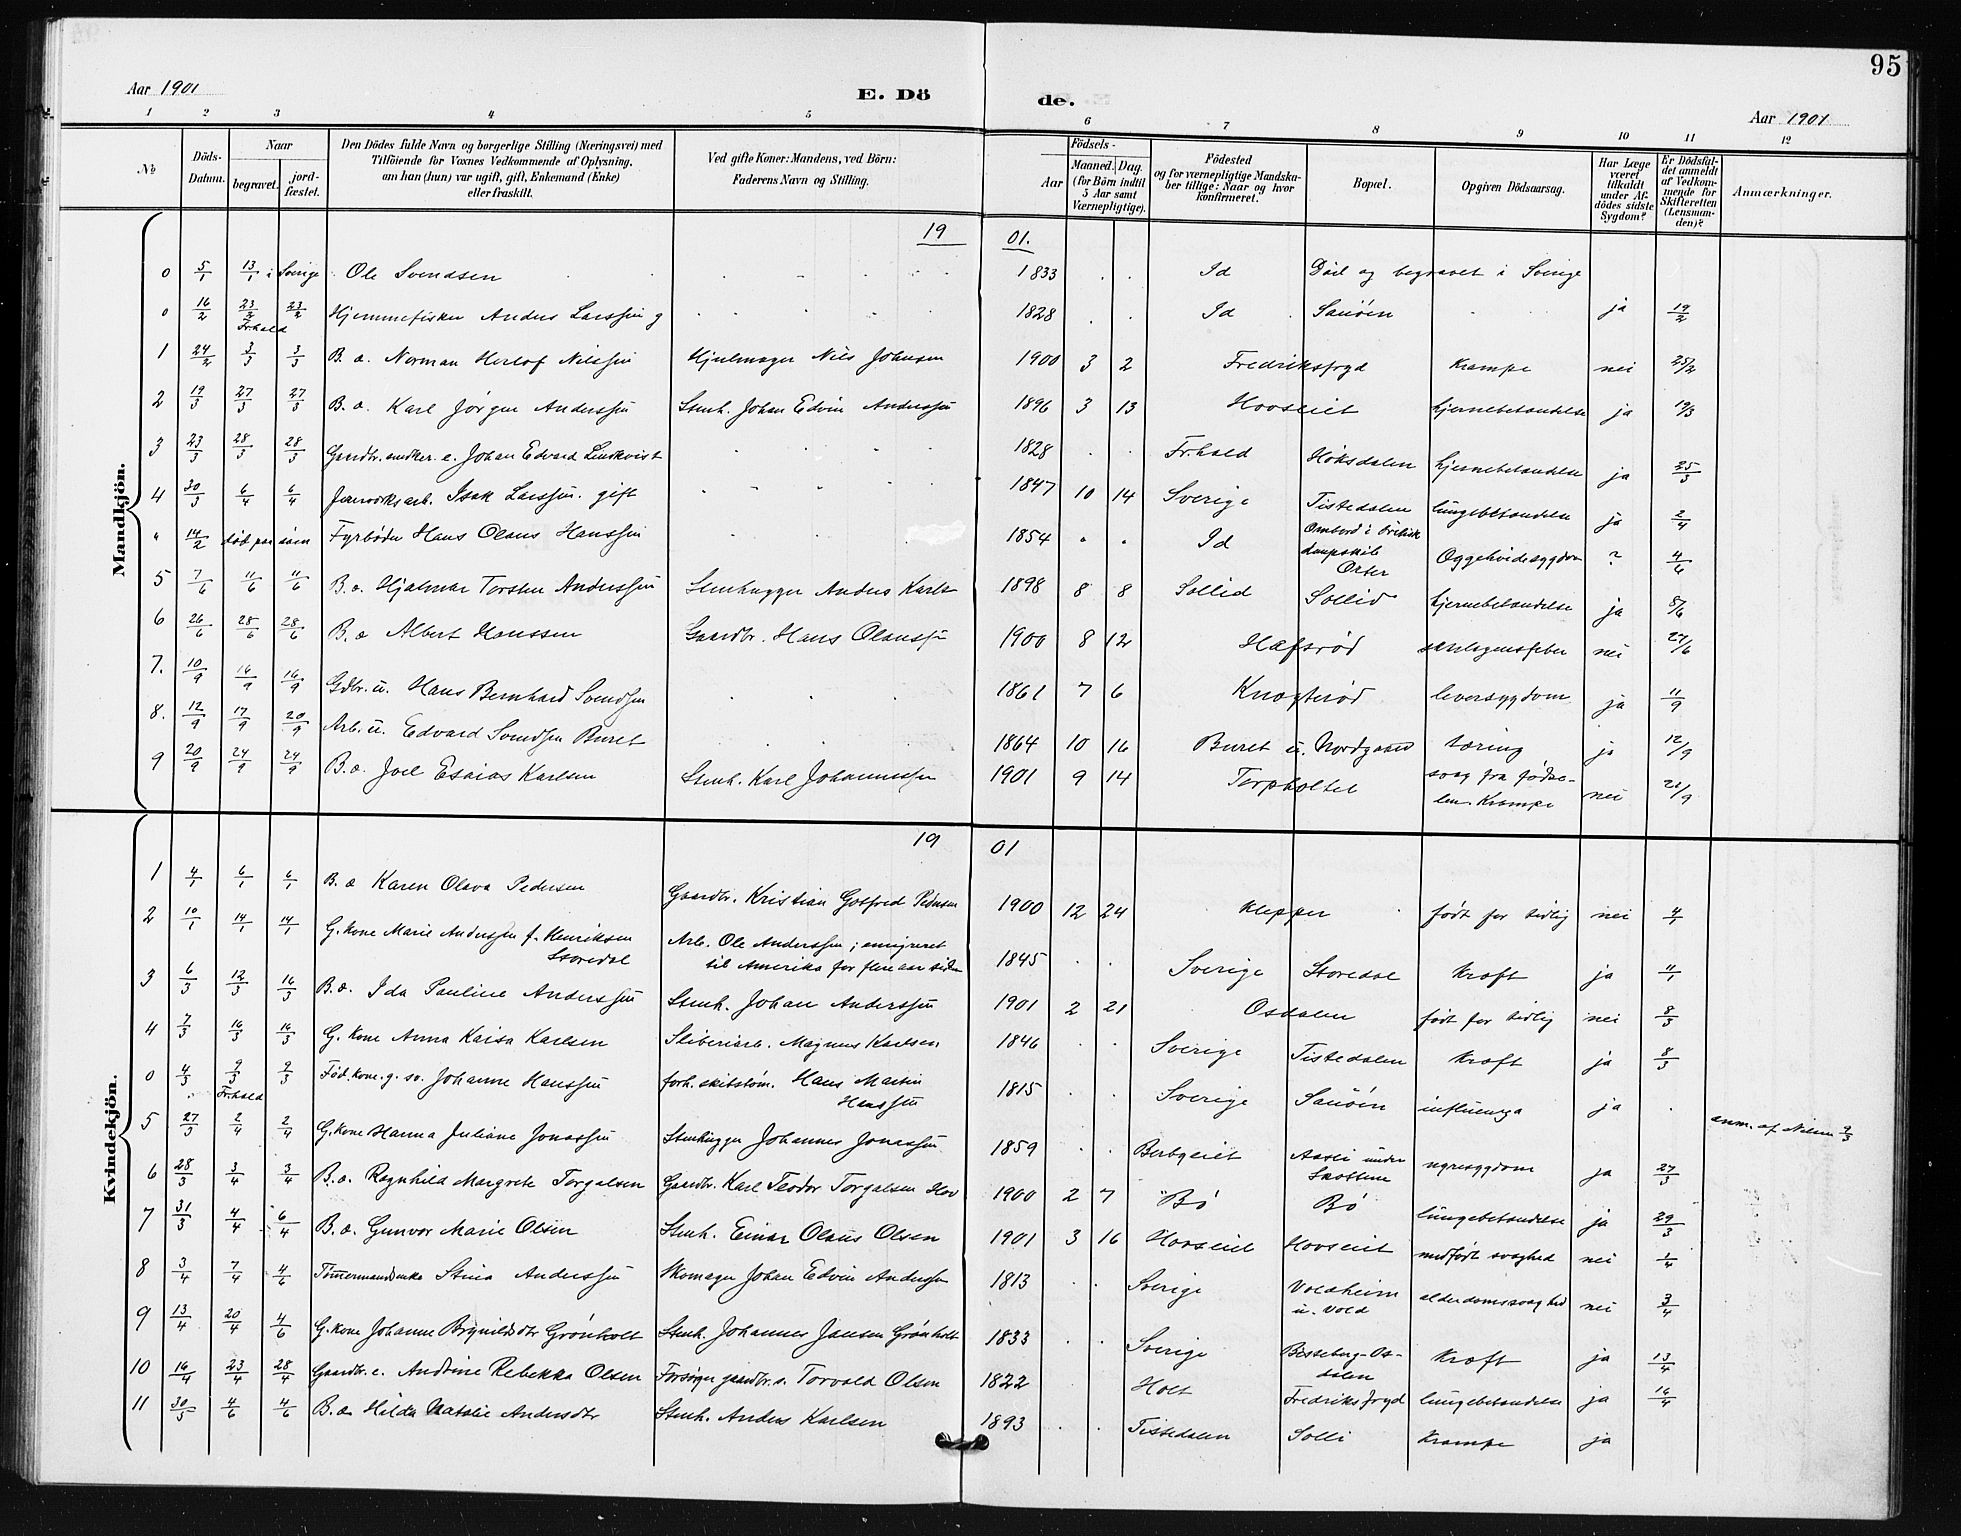 95
Aar 1901
E. Dö
de.
Aar 1901
1 2 3 4 5 6 7 8 9 10 11 12
No
Döds-Datum.
Naar
begravet.
jord-fæstet.
Den Dödes fulde Navn og borgerlige Stilling (Næringsvei) med
Tilföiende for Voxnes Vedkommende af Oplysning,
om han (hun) var ugift, gift, Enkemand (Enke)
eller fraskilt.
Ved gifte Koner: Mandens, ved Börn:
Faderens Navn og Stilling.
Födsels-
Aar
Maaned. Dag.
(for Börn indtil
5 Aar samt
Værnepligtige).
Födested
og for værnepligtige Mandska-
ber tillige: Naar og hvor
konfirmeret.
Bopæl.
Opgiven Dödsaarsag.
Har Læge
været
tilkaldt
under Af-
dödes sidste
Sygdom?
Er Dödsfal-
det anmeldt
af Vedkom-
mende for
Skifteretten
(Lensman-
den)?
Anmærkninger.
Mandkjön.
19 01.
0 5/1 13/1 i Sverige Ole Svendsen 1833 Id Död og begravet i Sverige
0 16/2 23/2 Fr.hald 23/2 Hjemmefisker Anders Larssen g 1828 Id Sauöen ja 19/2
1 24/2 3/3 3/3 B. a. Norman Herlof Nilssen Hjulmager Nils Johnsen 1900 3 2 Fredriksfryd Krampe nei 25/2
2 19/3 27/3 27/3 B. a. Karl Jörgen Anderssen Stenh. Johan Edvin Anderssen 1896 3 13 Hovseiet hjernebetændelse ja 19/3
3 23/3 28/3 28/3 Gaardbr. snedker. e. Johan Edvard Lindkvist 1828 Fr.hald Höksdalen hjernebetændelse ja 25/3
4 30/3 6/4 6/4 Jernverksarb. Isak Larssen. gift 1847 10 14 Sverige Tistedalen lungebetændelse ja 2/4
" 14/2 död paa söen Fyrböder Hans Olaus Hanssen 1854 " " Id Ombord i
Orter ? 4/6
5 7/6 11/6 11/6 B. a. Hjalmar Torsten Anderssen Stenhugger Anders Karls 1898 8 8 Sollid Sollid hjernebetændelse ja 8/6
6 26/6 28/6 28/6 B. a Albert Hanssen Gaardbr. Hans Olaussen 1900 8 12 Hafsrød skarlagensfeber nei 27/6
7. 10/9 16/9 16/9 Gdbr. u. Hans Bernhard Svendsen 1861 7 6 Knogterød leversygdom ja 11/9
8. 12/9 17/9 20/9 Arb. u. Edvard Svendsen Buret 1864 10 16 Buret u. Nordgaard tæring ja 12/9
9 20/9 24/9 24/9 B. a. Joel Esaias Karlsen Stenh. Karl Johannessen 1901 9 14 Torpholtet svag fra födse-
len. Krampe nei 21/9
Kvindekjön.
19 01
1 4/1 6/1 6/1 B. a Karen Olava Pedersen Gaardbr. Kristian Gotfred Pedersen 1900 12 24 Klepper født for tidlig nei 4/1
2 10/1 14/1 14/1 G. kone Marie Anderssen f. Henriksen
Storedal Arb. Ole Anderssen; emigreret
til Amerika for flere aar siden 1845 Sverige Storedal Kræft ja 11/1
3 6/3 12/3 16/3 B. a. Ida Pauline Anderssen Stenh. Johan Anderssen 1901 2 21 Osdalen født for tidlig nei 8/3
4 7/3 16/3 16/3 G. kone Anna Kaisa Karlsen Sliberiarb. Magnus Karlsen 1846 Sverige Tistedalen Kræft ja 8/3
0 4/3 9/3 Fr.hald 9/3 Föd.kone. g. sv. Johanne Hanssen forh. skibstöm. Hans Martin
Hanssen 1815 Sverige Sauöen influenza ja anm. af Nilsen 9/3
5 27/3 2/4 2/4 G. kone Hanna Juliane Jonassen Stenhugger Johannes Jonassen 1859 Berbyeiet Aasli under
Skottene nyresygdom ja 27/3
6 28/3 3/4 3/4 B. a. Ragnhild Margrete Torgalsen Gaardbr. Karl Teodor Torgalsen Hov 1900 2 7 Bö Bö lungebetændelse ja 29/3
7 31/3 4/4 6/4 B. a. Gunvor Marie Olsen Stenh. Einar Olaus Olsen 1901 3 16 Hovseiet Hovseiet medfödt svaghed nei 1/4
8 3/4 7/4 4/6 Tömermandsenke Stina Anderssen Skomager Johan Edvin Anderssen 1813 Sverige Voldheim
u. Vold alderdomssvaghed nei 3/4
9 13/4 20/4 4/6 G. kone Johanne Brynildsdtr Grönholt Stenh. Johannes Jansen Grönholt 1833 Sverige Besseberg-Os-
dalen Kræft ja 13/4
10 16/4 23/4 28/4 Gaardbr. e. Andrine Rebekka Olsen Forsörger gaardbr. s. Torvald Olsen 1822 Holt Fredriksfryd lungebetændelse ja 16/4
11 30/5 4/6 4/6 B. a Hilda Natalie Andersdtr Stenh. Anders Karlsen 1893 Tistedalen Solli Krampe ja